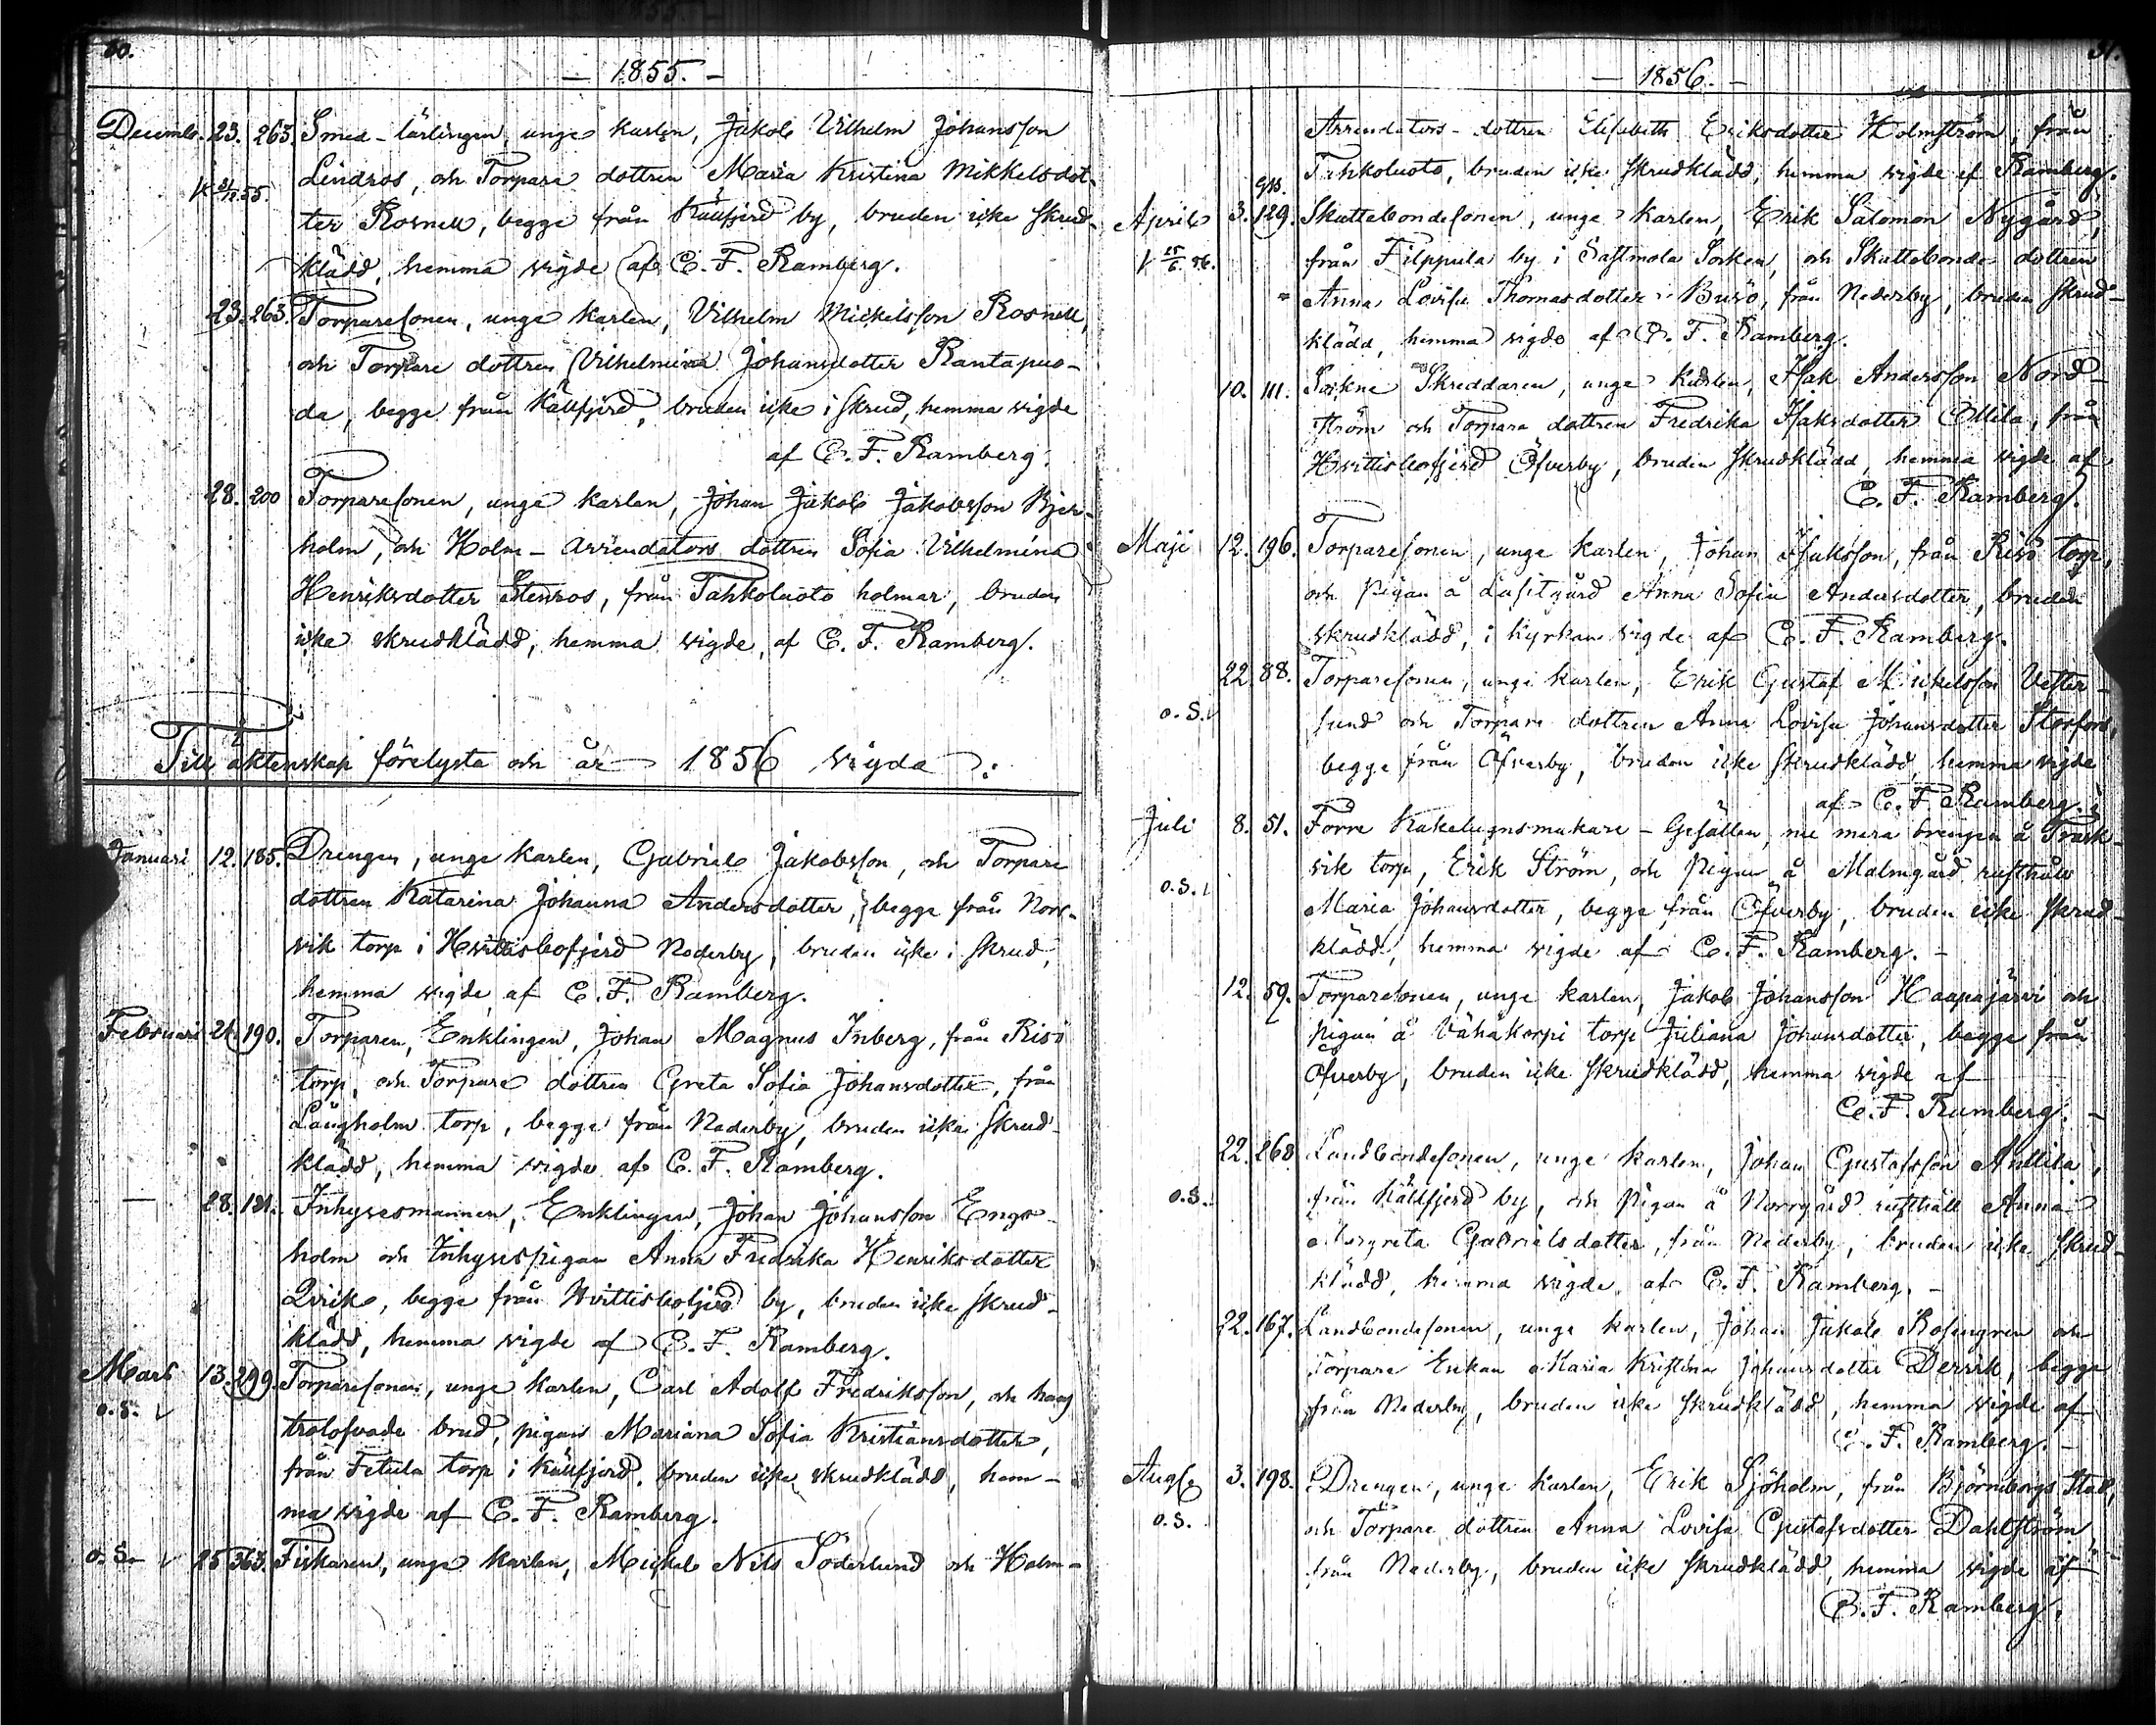 30.
— 1855. —
Decemb. 23. 263. Smed-lärlingen, unge karlen, Jakob Vilhelm Johansson
Lindros, och Torpare dottren Maria Kristina Mikkelsdot-
ter Rosnell, begge från Källfjerd by, bruden icke skrud-
klädd, hemma vigde af C. F. Ramberg.
23. 263. Torparesonen, unge karlen, Vilhelm Mickelsson Rosnell,
och Torpare dottren Vilhelmina Johansdotter Rantapuo-
da, begge från Källfjerd, bruden icke i skrud, hemma vigde
af C. F. Ramberg.
28. 200 Torparesonen, unge karlen, Johan Jakob Jakobsson Bjer-
holm, och Holm-arrendators dottren Sofia Vilhelmina
Henriksdotter Stenros, från Tahkoluoto holmar, bruden
icke skrudklädd, hemma vigde, af C. F. Ramberg.
Till äktenskap förelysta och år 1856 vigda:
Januari 12. 185. Drengen, unge karlen, Gabriel Jakobsson, och Torpare
dottren Katarina Johanna Andersdotter, begge från Norr-
vik torp i Hvittisbofjerd Nederby, bruden icke i skrud,
hemma vigde af C. F. Ramberg.
Februari 21. 190. Torparen, Enklingen, Johan Magnus Inberg, från Risö
torp, och Torpare dottren Greta Sofia Johansdotter, från
Långholm torp, begge från Nederby, bruden icke skrud-
klädd, hemma vigde af C. F. Ramberg.
— 28. 121. Inhysesmannen, Enklingen, Johan Johansson Engs-
holm och Inhysespigan Anna Fredrika Henriksdotter
Qvick, begge från Hvittisbofjerd by, bruden icke skrud-
klädd, hemma vigde af C. F. Ramberg.
Mars 13. 299. Torparesonen, unge karlen, Carl Adolf Fredriksson, och hans
o.S. trolofvade brud, pigan Mariana Sofia Kristiansdotter,
från Fetula torp i Källfjerd, bruden icke skrudklädd, hem-
ma vigde af C. F. Ramberg.
o.S. 25 363. Fiskaren, unge karlen, Mickel Nils Söderlund och Holm-
31.
— 1856. —
Arrendators-dottren Elisabeth Eriksdotter Holmström, från
Tahkoluoto, bruden icke skrudklädd, hemma vigde af Ramberg.
April 3. 129. Skattebondesonen, unge karlen, Erik Salomon Nygård,
från Filppula by i Sastmola Socken, och Skattebonde dottren
Anna Lovisa Thomasdotter Busö, från Nederby, bruden skrud-
klädd, hemma vigde af C. F. Ramberg.
10. 111. Sockne Skreddaren, unge karlen, Isak Andersson Nord-
ström och Torpare dottren Fredrika Isaksdotter Ollila, från
Hvittisbofjerd Öfverby, bruden skrudklädd, hemma vigde af
C. F. Ramberg.
Maji 12. 196. Torparesonen, unge karlen, Johan Isaksson, från Risö torp,
och Pigan å Lasilgård Anna Sofia Andersdotter, bruden
skrudklädd, i kyrkan vigde af C. F. Ramberg.
22. 88. Torparesonen, unge karlen, Erik Gustaf Mickelsson Vester-
o.S. lund och Torpare dottren Anna Lovisa Johansdotter Storfors,
begge från Öfverby, bruden icke skrudklädd, hemma vigde
af C. F. Ramberg.
Juli 8. 51. Förre Kakelugnsmakare-Gesällen, nu mera drengen å Träsk-
vik torp, Erik Ström, och Pigan å Malmgård rusthåll
o.S. Maria Johansdotter, begge från Öfverby, bruden icke skrud-
klädd, hemma vigde af C. F. Ramberg. -
12. 59. Torparesonen, unge karlen, Jakob Johansson Haapajärvi och
Pigan å Vähäkorpi torp Juliana Johansdotter, begge från
Öfverby, bruden icke skrudklädd, hemma vigde af
C. F. Ramberg. -
22. 268. Landbondesonen, unge karlen, Johan Gustafsson Anttila,
o.S. från Källfjerd by, och Pigan å Norrgård rusthåll Anna
Margreta Gabrielsdotter, från Nederby, bruden icke skrud-
klädd, hemma vigde af C. F. Ramberg. -
22. 167. Landbondesonen, unge karlen, Johan Jakob Rosengren och
Torpare Enkan Maria Kristina Johansdotter Derrik, begge
från Nederby, bruden icke skrudklädd, hemma vigde af
C. F. Ramberg. -
Aug. 3. 198. Drengen, unge karlen, Erik Sjöholm, från Björneborgs Stad,
o.S. och Torpare dottren Anna Lovisa Gustafsdotter Dahlström
från Nederby, bruden icke skrudklädd, hemma vigde af
C. F. Ramberg.